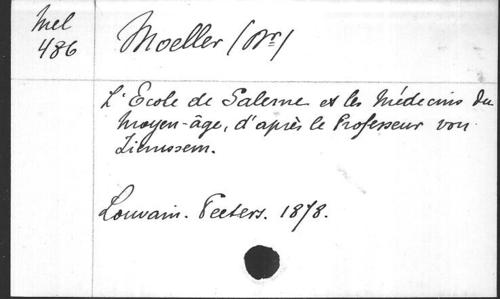 Mel
486
Moeller (Dr)
L'Ecole de Salerne et les Médecins du
Moyen-âge, d'après le Professeur von
Ziemssem.
Louvain. Peeters. 1878.